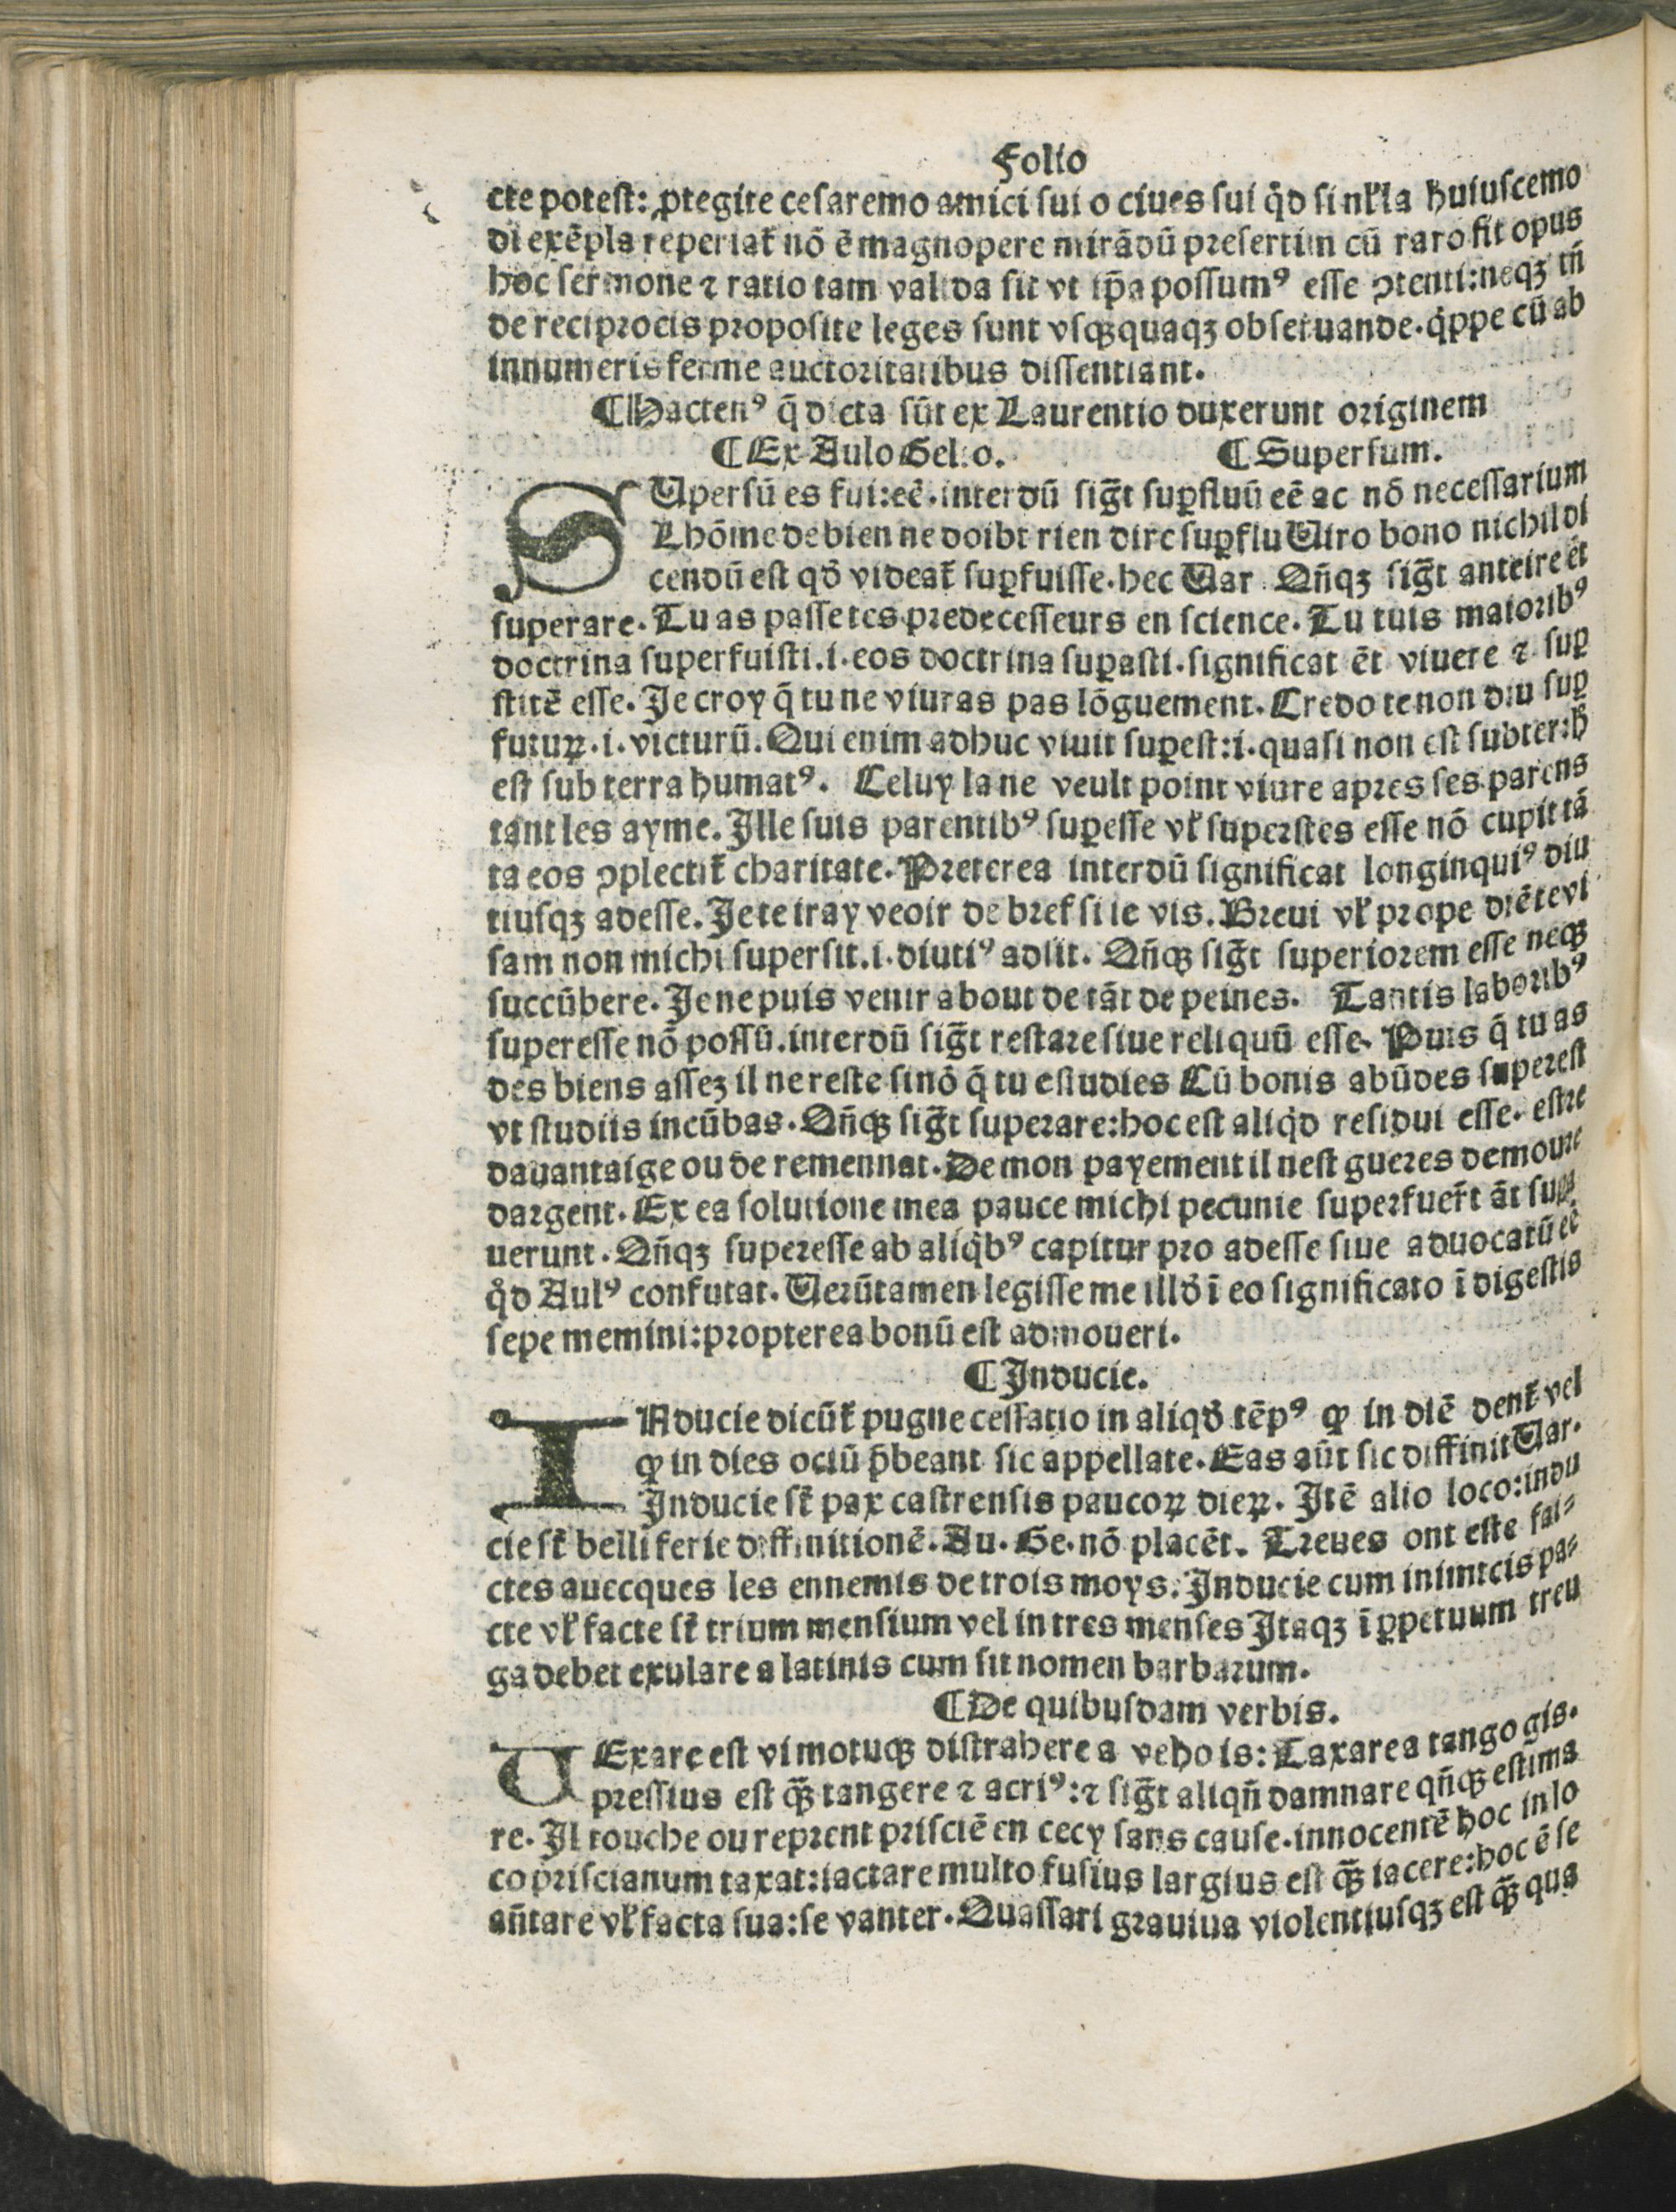 Folio
cte potest: ꝓtegite cesaremo amici sui o ciues sui qͥd si nŀla huiuscemo
di exēpla reperiat᷑ nō ē magnopere mirādū presertim cū raro fit opus
hoc sermone ⁊ ratio tam valida sit vt ip̄a possumꝰ esse ꝯtenti: neqꝫ tn̄
de reciprocis proposite leges sunt vsqꝫquaqꝫ obseruande. qͥppe cū ab
innumeris ferme auctoritatibus dissentiant.
¶ Hactenꝰ q̄ dicta sūt ex Laurentio duxerunt originem
¶ Ex Aulo Gelio. ¶ Supersum.
SUpersū es fui: eē. interdū sig̅t suꝑfluū eē ac nō necessarium
Lhōme de bien ne doibt rien dire suꝑflu Uiro bono nichil di
cendū est qd̄ videat᷑ suꝑfuisse. hec Uar. Qn̄qꝫ sig̅t anteire ēt
superare. Tu as passe tes predecesseurs en science. Tu tuis maioribꝰ
doctrina superfuisti. i. eos doctrina suꝑasti. significat ēt viuere ⁊ suꝑ
stitē esse. Je croy q̄ tu ne viuras pas lōguement. Credo te non diu suꝑ
futuꝝ. i. victurū. Qui enim adhuc viuit suꝑest: i. quasi non est subter: ħ
est sub terra humatꝰ. Celuy la ne veult point viure apres ses parens
tant les ayme. Ille suis parentibꝰ suꝑesse vŀ superstes esse nō cupit tā
ta eos ꝯplectit᷑ charitate. Preterea interdū significat longinquiꝰ diu
tiusqꝫ adesse. Je te iray veoir de bref si ie vis. Breui vŀ prope diē te vi
sam non michi supersit. i. diutiꝰ adsit. Qn̄qꝫ sig̅t superiorem esse neqꝫ
succūbere. Je ne puis venir a bout de tāt de peines. Tantis laboribꝰ
superesse nō possū. interdū sig̅t restare siue reliquū esse. Puis q̄ tu as
des biens assez il ne reste sinō q̄ tu estudies Cū bonis abūdes superest
vt studiis incūbas. Qn̄qꝫ sig̅t superare: hoc est aliqͥd residui esse. estre
dauantaige ou de remennat. De mon payement il nest gueres demoure
dargent. Ex ea solutione mea pauce michi pecunie superfuer̄t āt supa
uerunt. Qn̄qꝫ superesse ab aliqͥbꝰ capitur pro adesse siue aduocatū eē
qͦd Aulꝰ confutat. Uerūtamen legisse me illd̄ ī eo significato ī digestis
sepe memini: propterea bonū est admoueri.
¶ Inducie.
INducie dicūt᷑ pugne cessatio in aliqd̄ tēpꝰ ꝙ in diē dent᷑ vel
ꝙ in dies ociū p̄beant sic appellate. Eas aūt sic diffinit Uar.
Inducie st᷑ pax castrensis paucoꝝ dieꝝ. Itē alio loco: indu
cie st᷑ belli ferie diffinitionē. Au. Ge. nō placēt. Treues ont este fai-
ctes auecques les ennemis de trois moys. Inducie cum inimicis pa-
cte vŀ facte st᷑ trium mensium vel in tres menses Itaqꝫ ī ꝑpetuum treu
ga debet exulare a latinis cum sit nomen barbarum.
¶ De quibusdam verbis.
UExare est vi motuqꝫ distrahere a veho is: Taxare a tango gis.
pressius est qꝫ̄ tangere ⁊ acriꝰ: ⁊ sig̅t aliqn̄ damnare qn̄qꝫ estima
re. Il touche ou reprent prisciē en cecy sans cause. innocentē hoc in lo
co priscianum taxat: iactare multo fusius largius est qꝫ̄ iacere: hoc ē se
an̄tare vŀ facta sua: se vanter. Quassari grauius violentiusqꝫ est qꝫ̄ qua